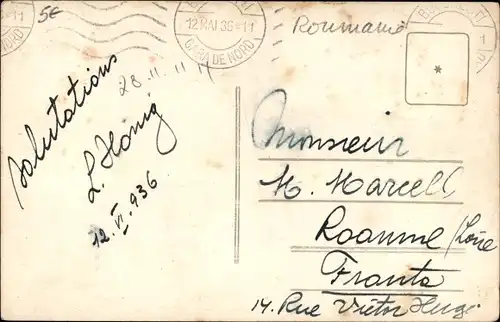 5€
12 MAI 36-11
GARA DE NORD
NORD
Roumanie
28.11.11
1
*
Salutations
L. Hönig
12. VI. 936
Monsieur
M. Marcell
Roanne /Loire
Franta
14. Rue Victor Hugo